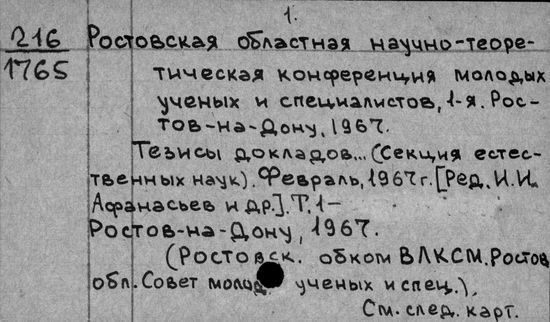 1.
216 Ростовская областная научно-теоре-
1765
тическая конференция молодых
ученых и специалистов, 1-я. Рос-
тов-на-Дону, 1967.
Тезисы докладов... (Секция естес-
твенных наук). Февраль, 1967 г. [Ред. И.И.
Афанасьев и др.]. Т. 1-
Ростов-на-Дону, 1967.
(Ростовск. обком ВЛКСМ. Ростов
обл. Совет молод. ученых и спец.).
См. след. карт.